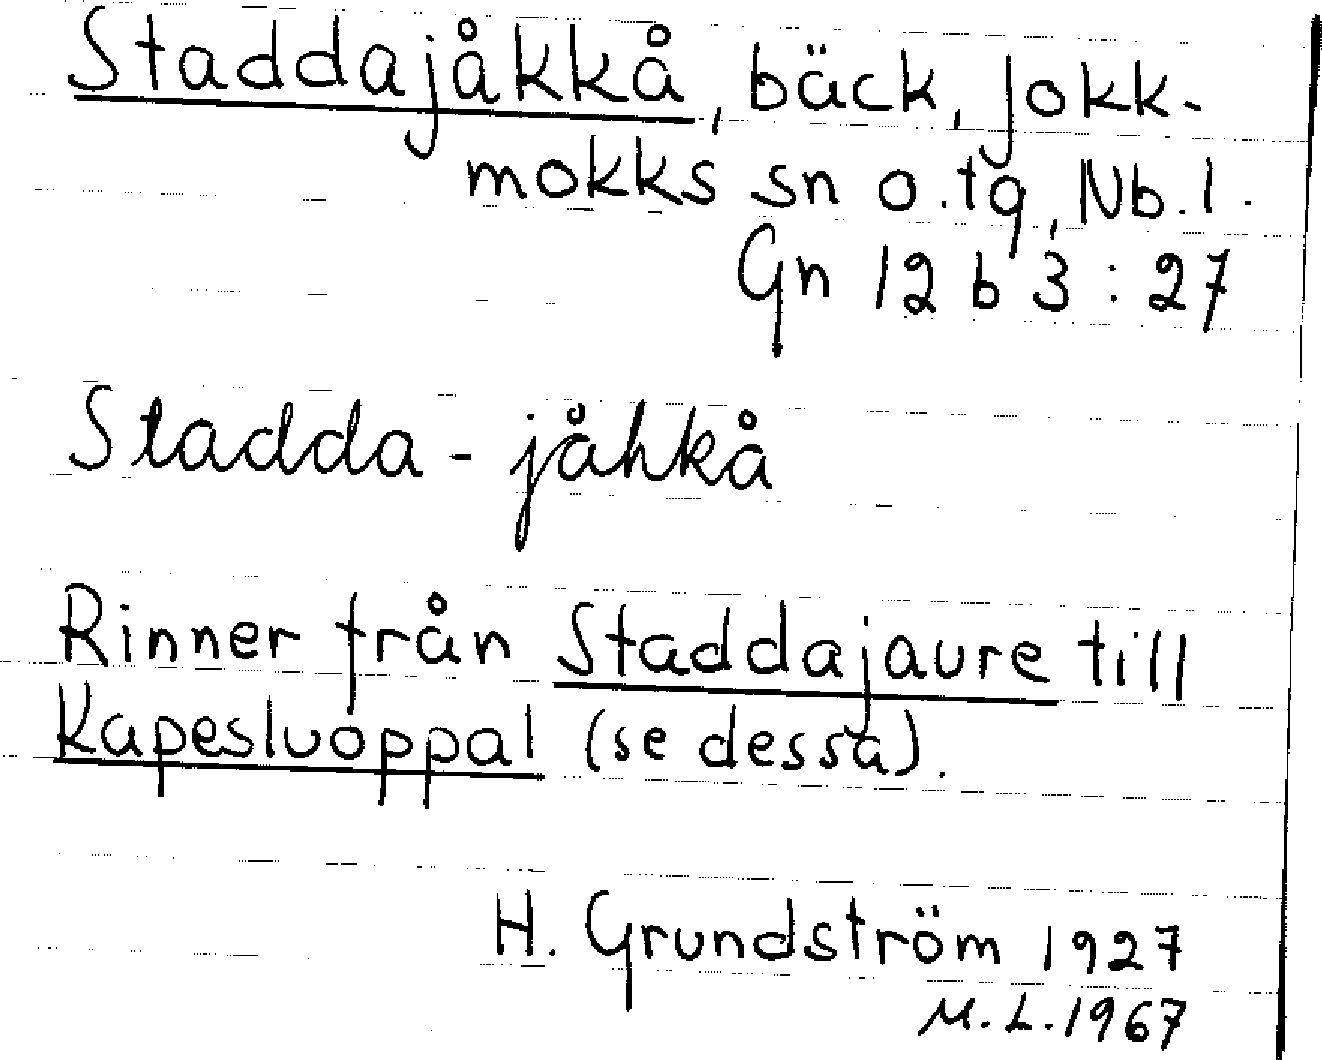 Staddajåkkå, bäck, Jokk-
mokks sn o. tg, Nb. l.
Gn 12 b 3 : 27
Stadda - jåhkå
Rinner från Staddajaure till
Kapesluoppal (se dessa).
H. Grundström 1927
M. L. 1967